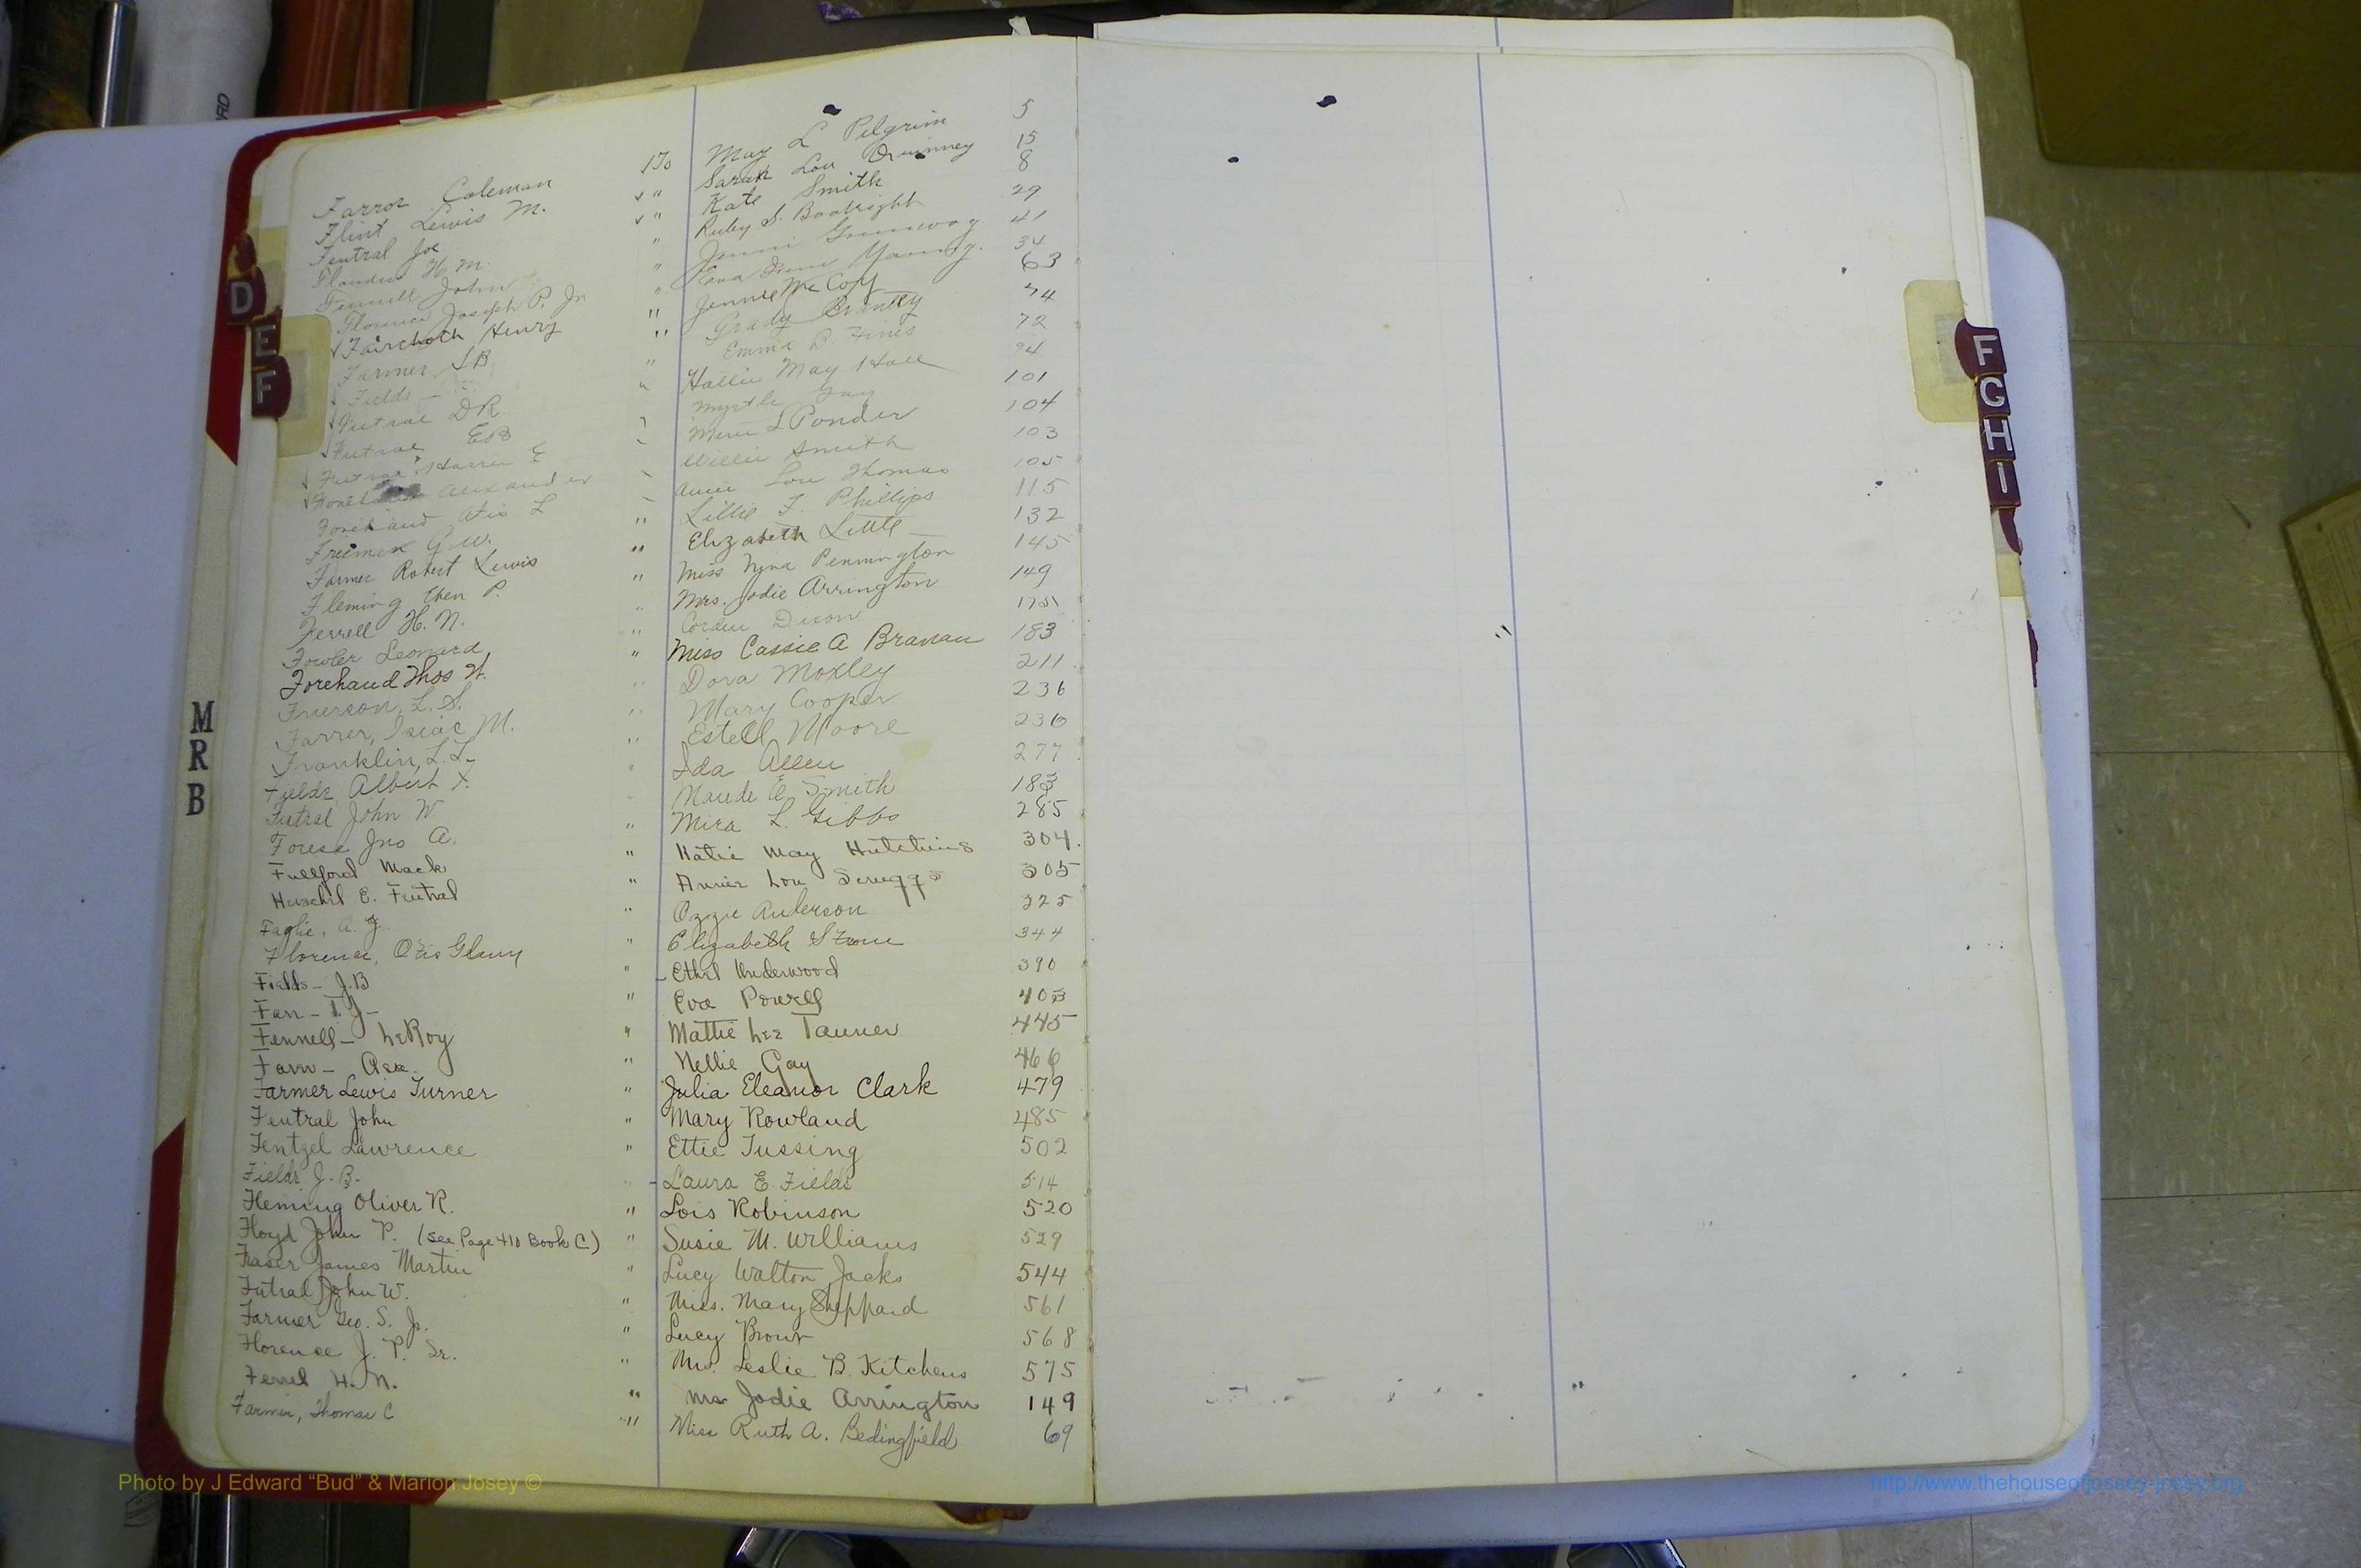 Farror Coleman To May L Pelgrim 5
Flint Lewis M. " Sarah Lou Quinney 15
Feutral Joe " Kate Smith 8
Flanders H. M. " Ruby S. Boatright 29
Fennell John " 41
Florence Joseph P. Jr " Young 34
Faircloth Henry " Jennie McCoy 63
Farmer S B " Grady Brantley 74
Fields " Emma P. Fines 72
Futral D R. " Hallie May Hall 94
Futral E B Myrtle Gay 101
Futral Harris E L Ponder 104
Forehand Alexander Willie Smith 103
Forehand Otis L Annie Lou Thomas 105
Freeman G. W. " Lillie F. Phillips 115
Farmer Robert Lewis " Elizabeth Little 132
Fleming Eben P. " Miss Nyna Pennington 145
Ferrell H. N. " Mrs. Jodie Arrington 149
Fowler Leonard " Cordie Dixon 175
Forehand Thos H. " Miss Cassie A Branan 183
Frierson, L. S. " Dora Moxley 211
Farrer, Isiac M. " Mary Cooper 236
Franklin, L. L. " Estell Moore 236
Fields Albert F. " Ida Allen 277
Futral John W " Maude E Smith 183
Forese Jno A. " Mira L. Gibbs 285
Fullford Mack " Katie May Hutchins 304.
Huschel E. Feutral " Annie Lou Scruggs 305
Faglie, A. J. " Ozzie Anderson 325
Florence, Otis Glenn " Elizabeth Stone 344
Fields - J. B " Ethel Underwood 390
Farr - T. J - " Eva Powell 403
Fennell - LeRoy " Mattie Lee Tanner 445
Farr - Asa. " Nellie Gay 466
Farmer Lewis Turner " Julia Eleanor Clark 479
Feutral John " Mary Rowland 485
Fentzel Lawrence " Ettie Tussing 502
Fields J. B. " Laura E. Fields 514
Fleming Oliver R. " Lois Robinson 520
Floyd John P. (see Page 410 Book C) " Susie M. Williams 529
Fraser James Martin " Lucy Walton Jacks 544
Futral John W. " Miss. Mary Sheppard 561
Farmer Geo. S. Jr. " Lucy Brown 568
Florence J. P. Sr. " Mrs. Leslie B. Kitchens 575
Ferrel H. N. " Mrs Jodie Arrington 149
Farmer, Thomas C " Miss Ruth A. Bedingfield 69
D
E
F
F
G
H
I
M
R
B
Photo by J Edward “Bud” & Marion Josey ©
http://www.thehouseofjossey-josey.org